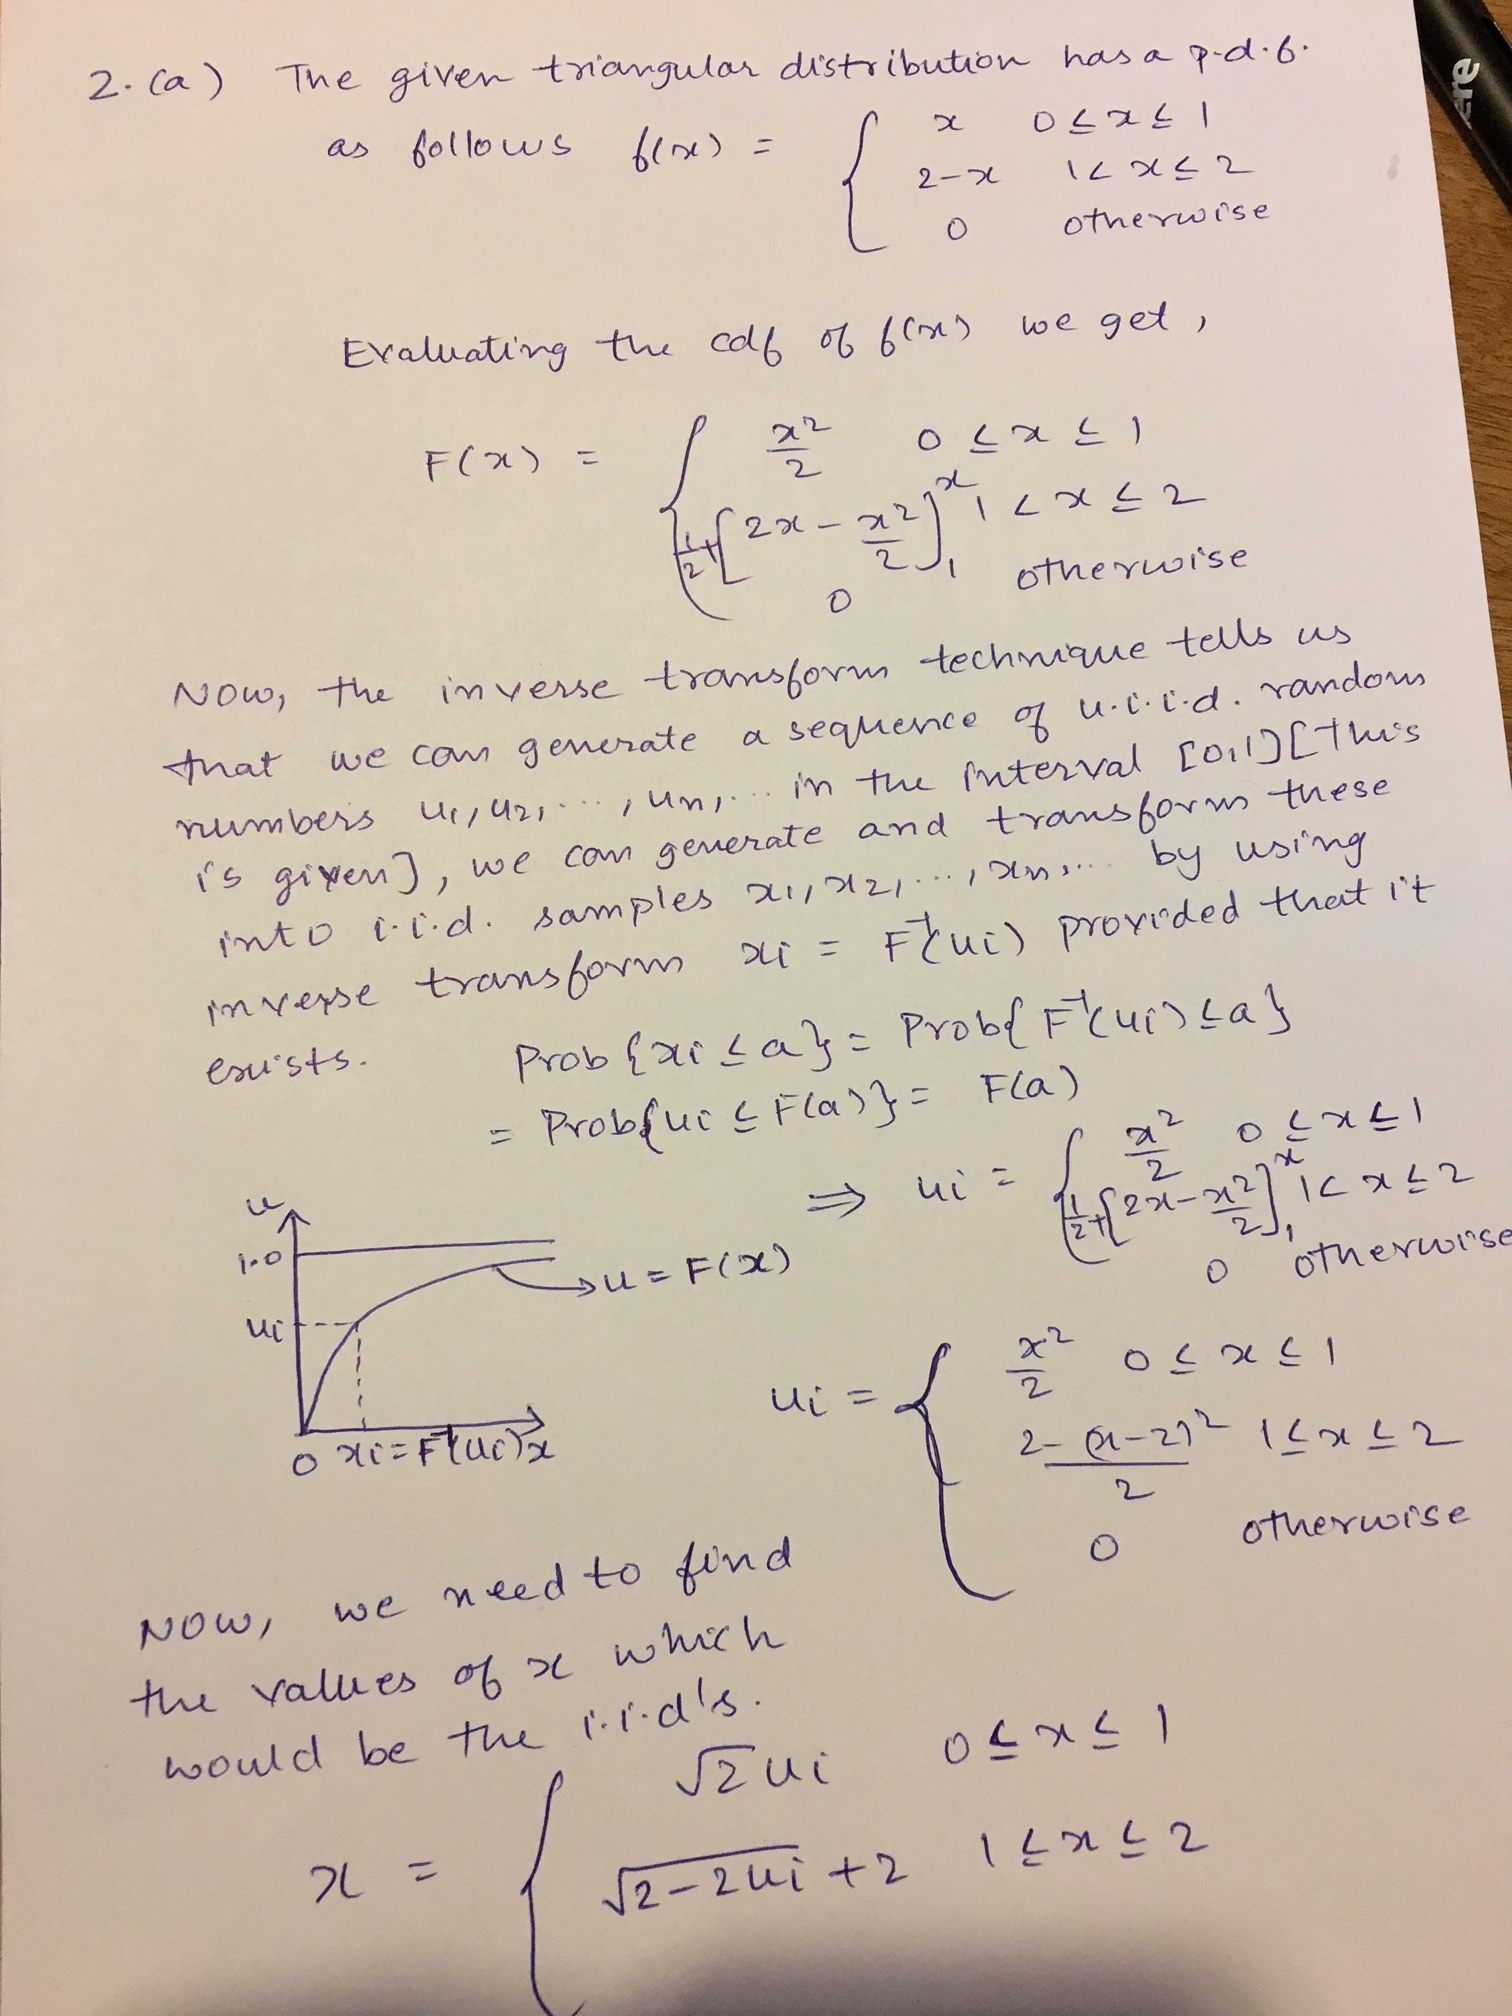 2. (a) The given triangular distribution has a p.d.f.
as follows f(x) = { x 0 ≤ x ≤ 1
2-x 1 < x ≤ 2
0 otherwise
Evaluating the cdf of f(x) we get,
F(x) = { x²/2 0 ≤ x ≤ 1
1/2 + [2x - x²/2]₁ˣ 1 < x ≤ 2
0 otherwise
Now, the inverse transform technique tells us
that we can generate a sequence of u.i.i.d. random
numbers u₁, u₂, ..., uₙ, ... in the interval [0,1] [This
is given], we can generate and transform these
into i.i.d. samples x₁, x₂, ..., xₙ, ... by using
inverse transform xi = F⁻¹(ui) provided that it
exists. Prob{xi ≤ a} = Prob{F⁻¹(ui) ≤ a}
= Prob{ui ≤ F(a)} = F(a)
⇒ ui = { x²/2 0 ≤ x ≤ 1
1/2 + [2x - x²/2]₁ˣ 1 < x ≤ 2
0 otherwise
u
1.0
u = F(x)
ui
0 xi = F⁻¹(ui) x
ui = { x²/2 0 ≤ x ≤ 1
2-(x-2)²/2 1 ≤ x ≤ 2
0 otherwise
Now, we need to find
the values of x which
would be the i.i.d's.
x = { √2ui 0 ≤ x ≤ 1
√2-2ui + 2 1 ≤ x ≤ 2
ere